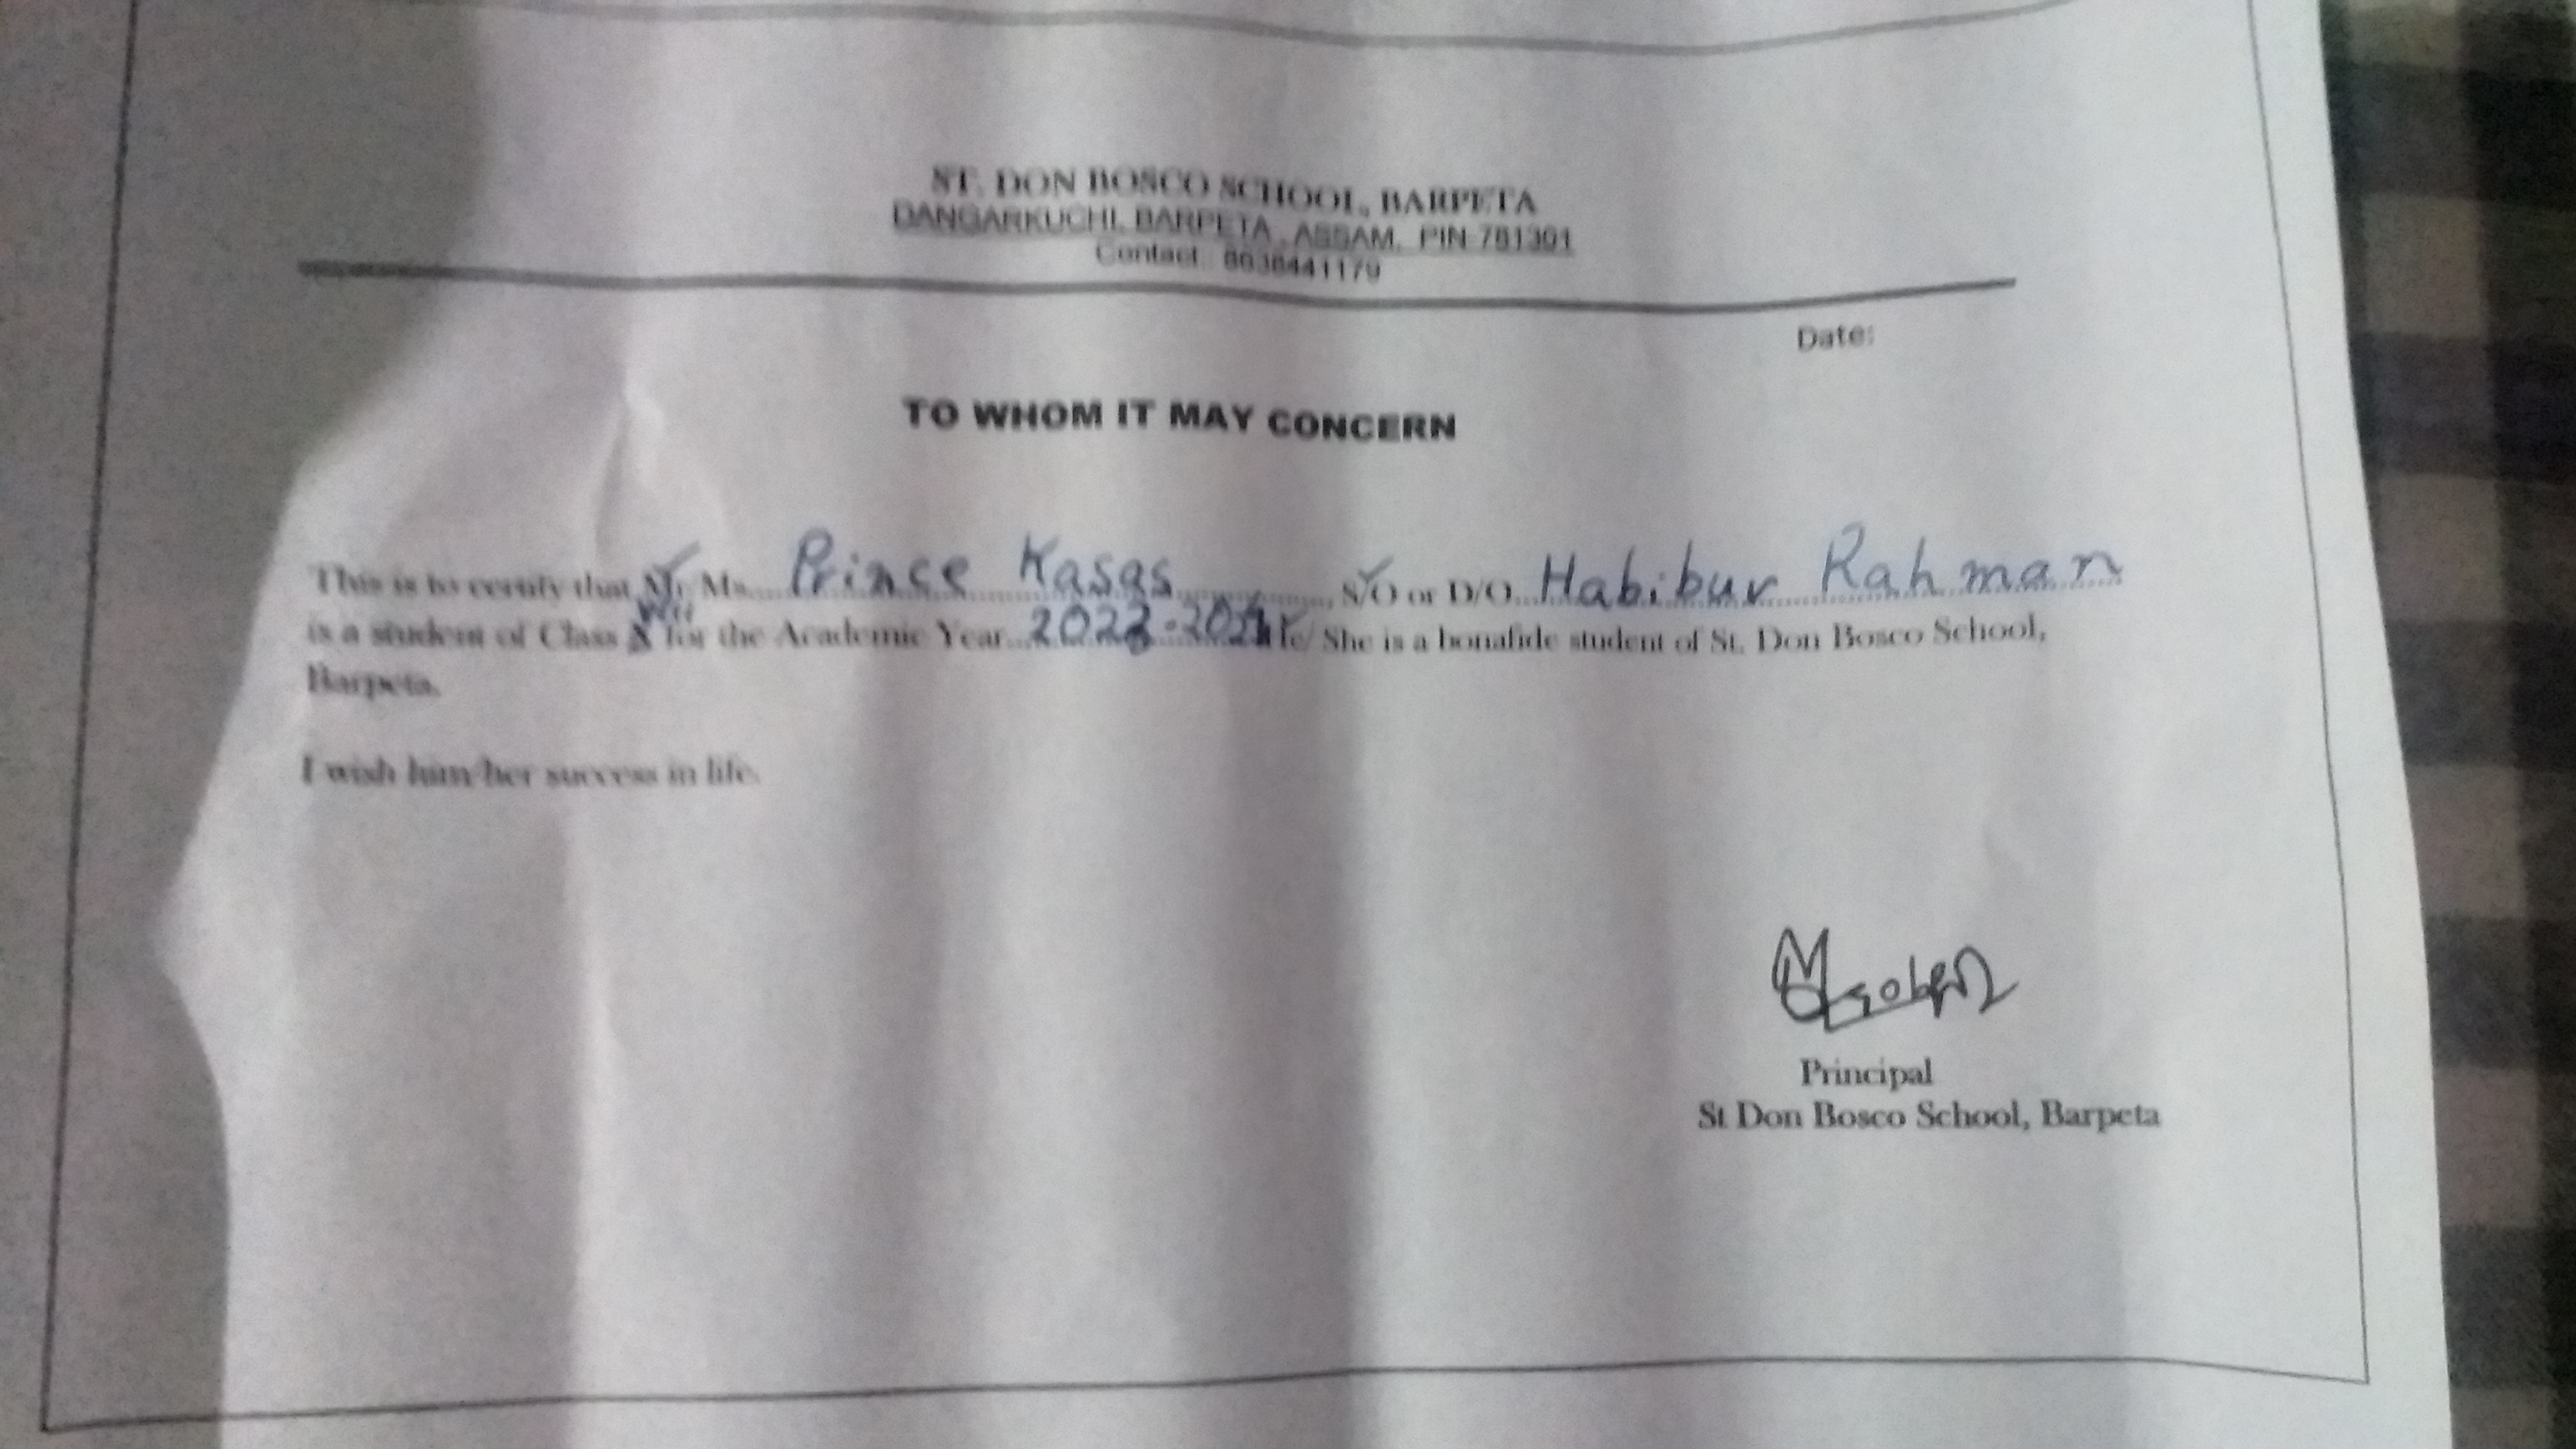 ST. DON BOSCO SCHOOL, BARPETA
DANGARKUCHI, BARPETA, ASSAM, PIN-781301
Contact: 8638441179
Date:
TO WHOM IT MAY CONCERN
This is to certify that Mr/Ms.....Prince Kasas..............., S/O or D/O...Habibur Rahman
is a student of Class for the Academic Year...2023-2024 He/ She is a bonafide student of St. Don Bosco School,
Barpeta.
I wish him/her success in life.
Principal
St Don Bosco School, Barpeta